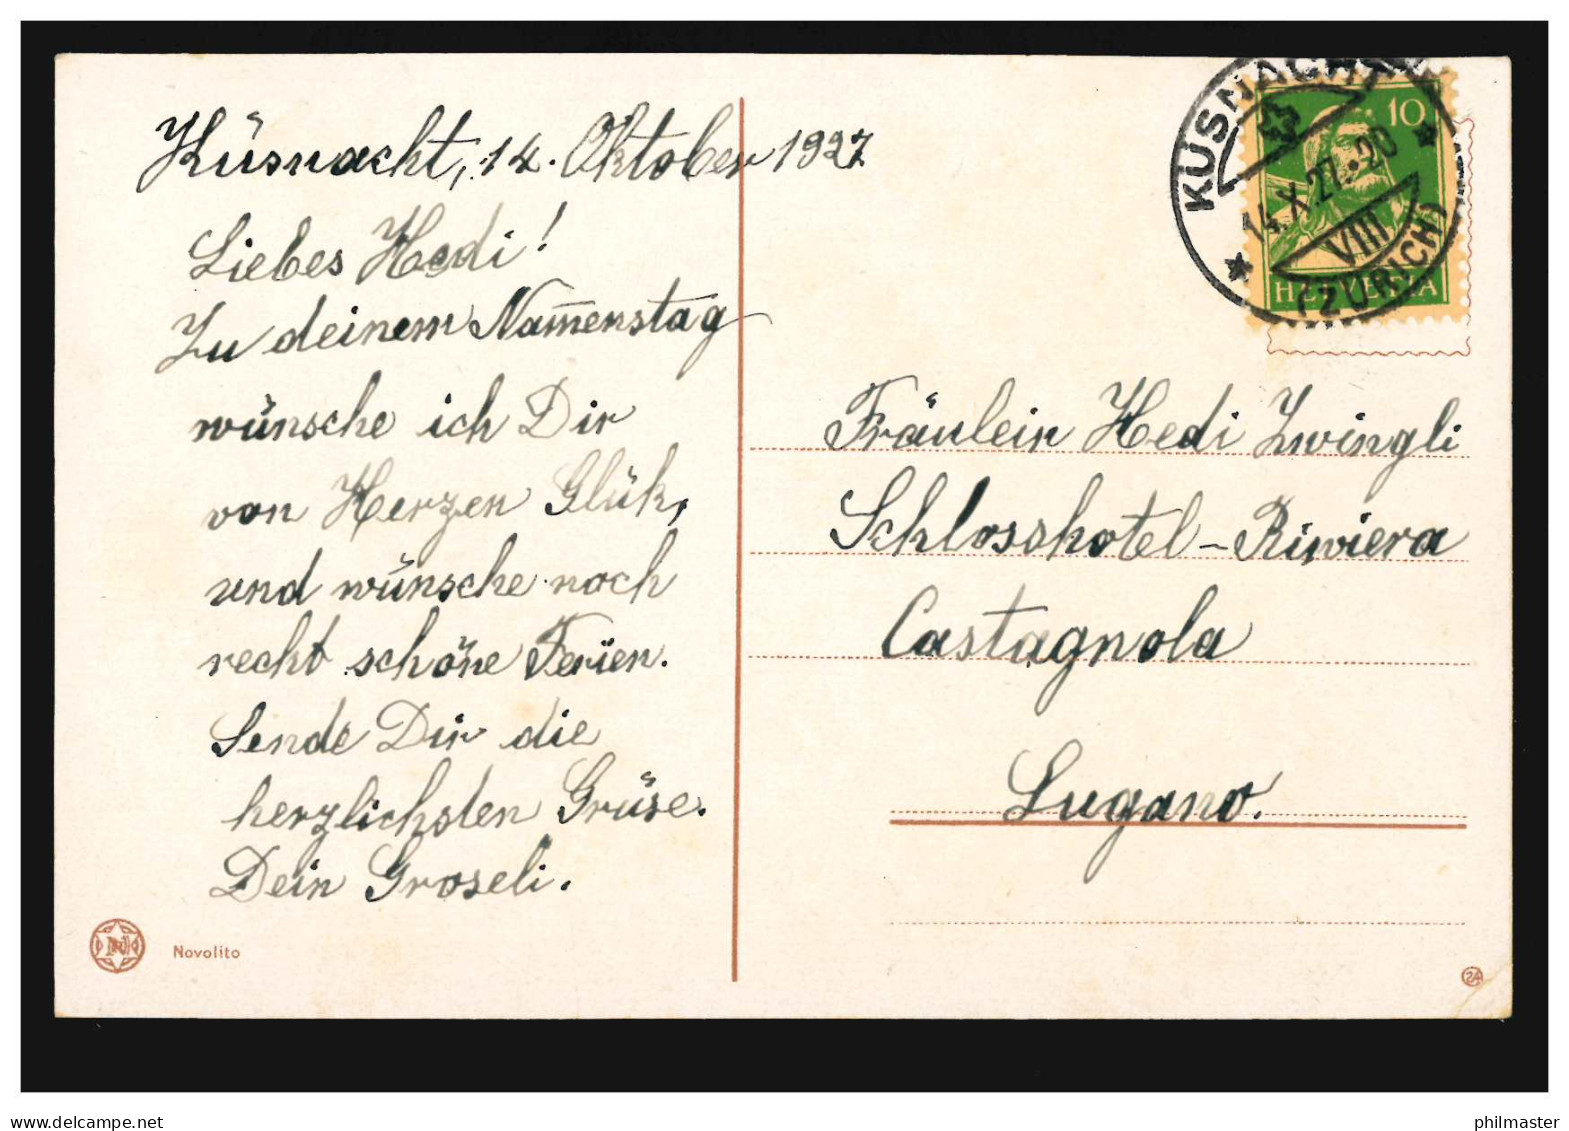 Küsnacht, 14. Oktober 1927
Liebes Hedi!
Zu deinem Nam̄enstag
wünsche ich Dir
von Herzen Glük,
und wünsche noch
recht schöne Ferien.
Sende Dir die
herzlichsten Grüse.
Dein Groseli.
Novolito
KÜSNACHT
14.X.27.•20
VIII
(ZÜRICH)
10
HELVETIA
Fräulein Hedi Zwingli
Schlosshotel-Riwiera
Castagnola
Lugano.
24
www.delcampe.net
philmaster